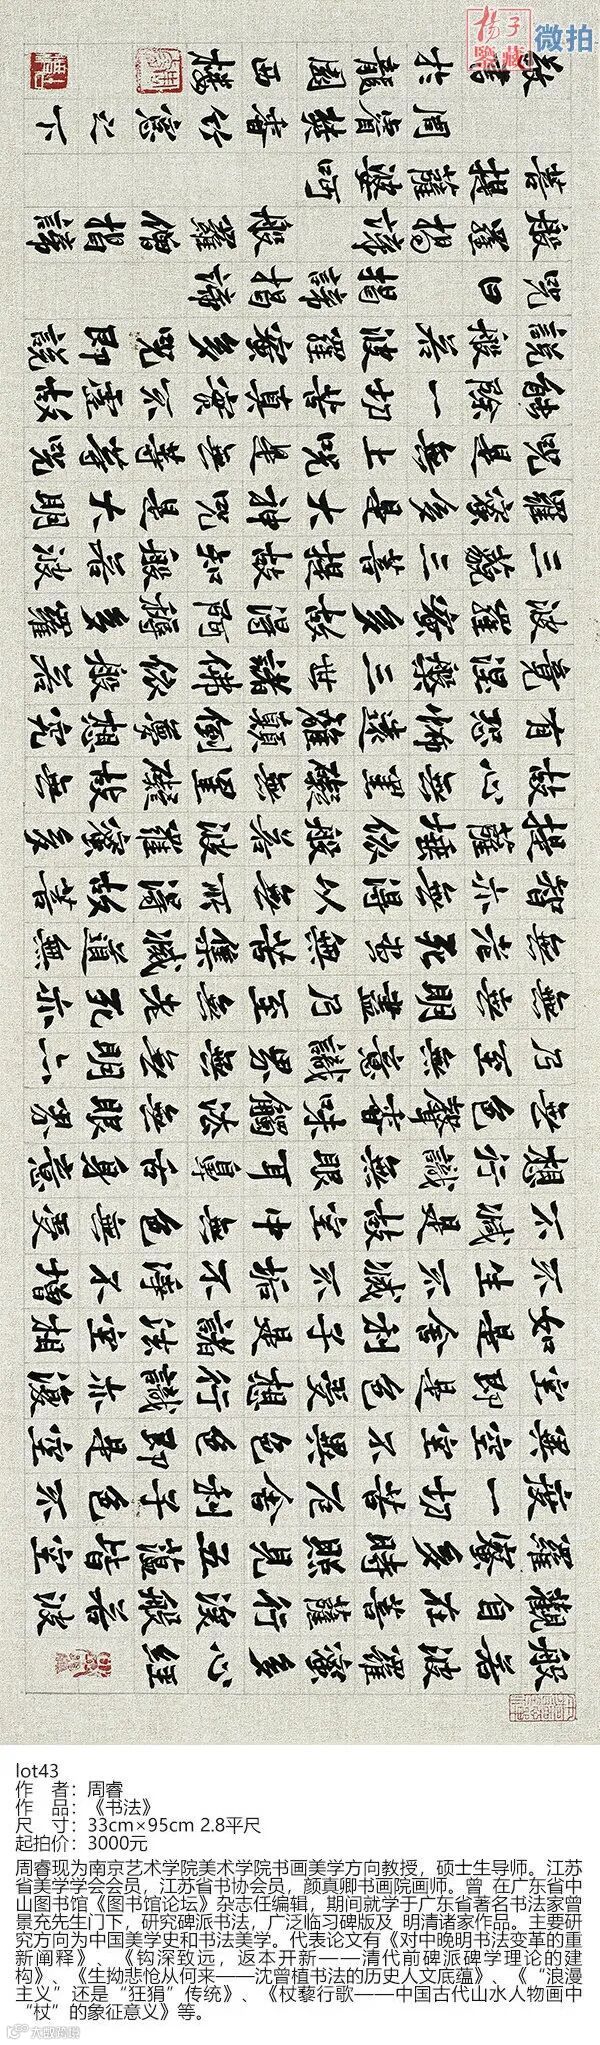 揚子
鑒藏
微拍
般若波羅蜜多心經
觀自在菩薩行深般若波
羅蜜多時照見五蘊皆空
度一切苦厄舍利子色不
異空空不異色色即是空
空即是色受想行識亦復
如是舍利子是諸法空相
不生不滅不垢不淨不增
不減是故空中無色無受
想行識無眼耳鼻舌身意
無色聲香味觸法無眼界
乃至無意識界無無明亦
無無明盡乃至無老死亦
無老死盡無苦集滅道無
智亦無得以無所得故菩
提薩埵依般若波羅蜜多
故心無罣礙無罣礙故無
有恐怖遠離顛倒夢想究
竟涅槃三世諸佛依般若
波羅蜜多故得阿耨多羅
三藐三菩提故知般若波
羅蜜多是大神咒是大明
咒是無上咒是無等等咒
能除一切苦真實不虛故
說般若波羅蜜多咒即說
咒曰 揭諦揭諦
般羅揭諦 般羅僧揭諦
菩提薩婆呵
周睿焚香竹窗之下
敬書於龍園西樓
lot43
作 者：周睿
作 品：《书法》
尺 寸：33cm×95cm 2.8平尺
起拍价：3000元
周睿现为南京艺术学院美术学院书画美学方向教授，硕士生导师。江苏
省美学学会会员，江苏省书协会员，颜真卿书画院画师。曾 在广东省中
山图书馆《图书馆论坛》杂志任编辑，期间就学于广东省著名书法家曾
景充先生门下，研究碑派书法，广泛临习碑版及 明清诸家作品。主要研
究方向为中国美学史和书法美学。代表论文有《对中晚明书法变革的重
新阐释》、《钩深致远，返本开新——清代前碑派碑学理论的建
构》、《生拗悲怆从何来——沈曾植书法的历史人文底蕴》、《“浪漫
主义”还是“狂狷”传统》、《杖藜行歌——中国古代山水人物画中
“杖”的象征意义》等。